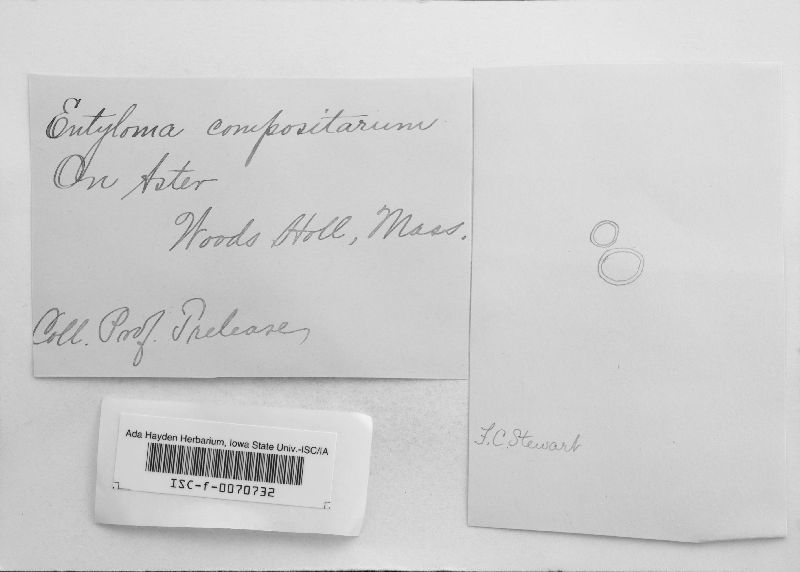 Entyloma compositarum
On Aster
Woods Holl, Mass.
Coll. Prof. Trelease,
Ada Hayden Herbarium, Iowa State Univ.-ISC/IA
ISC-f-0070732
F.C. Stewart